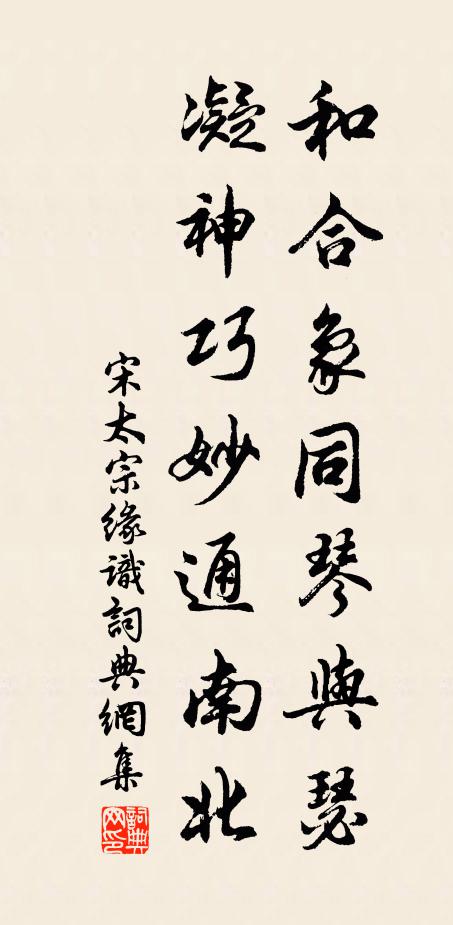 和合象同琴與瑟
凝神巧妙通南北
宋太宗緣識詞典網集
詞典
网印